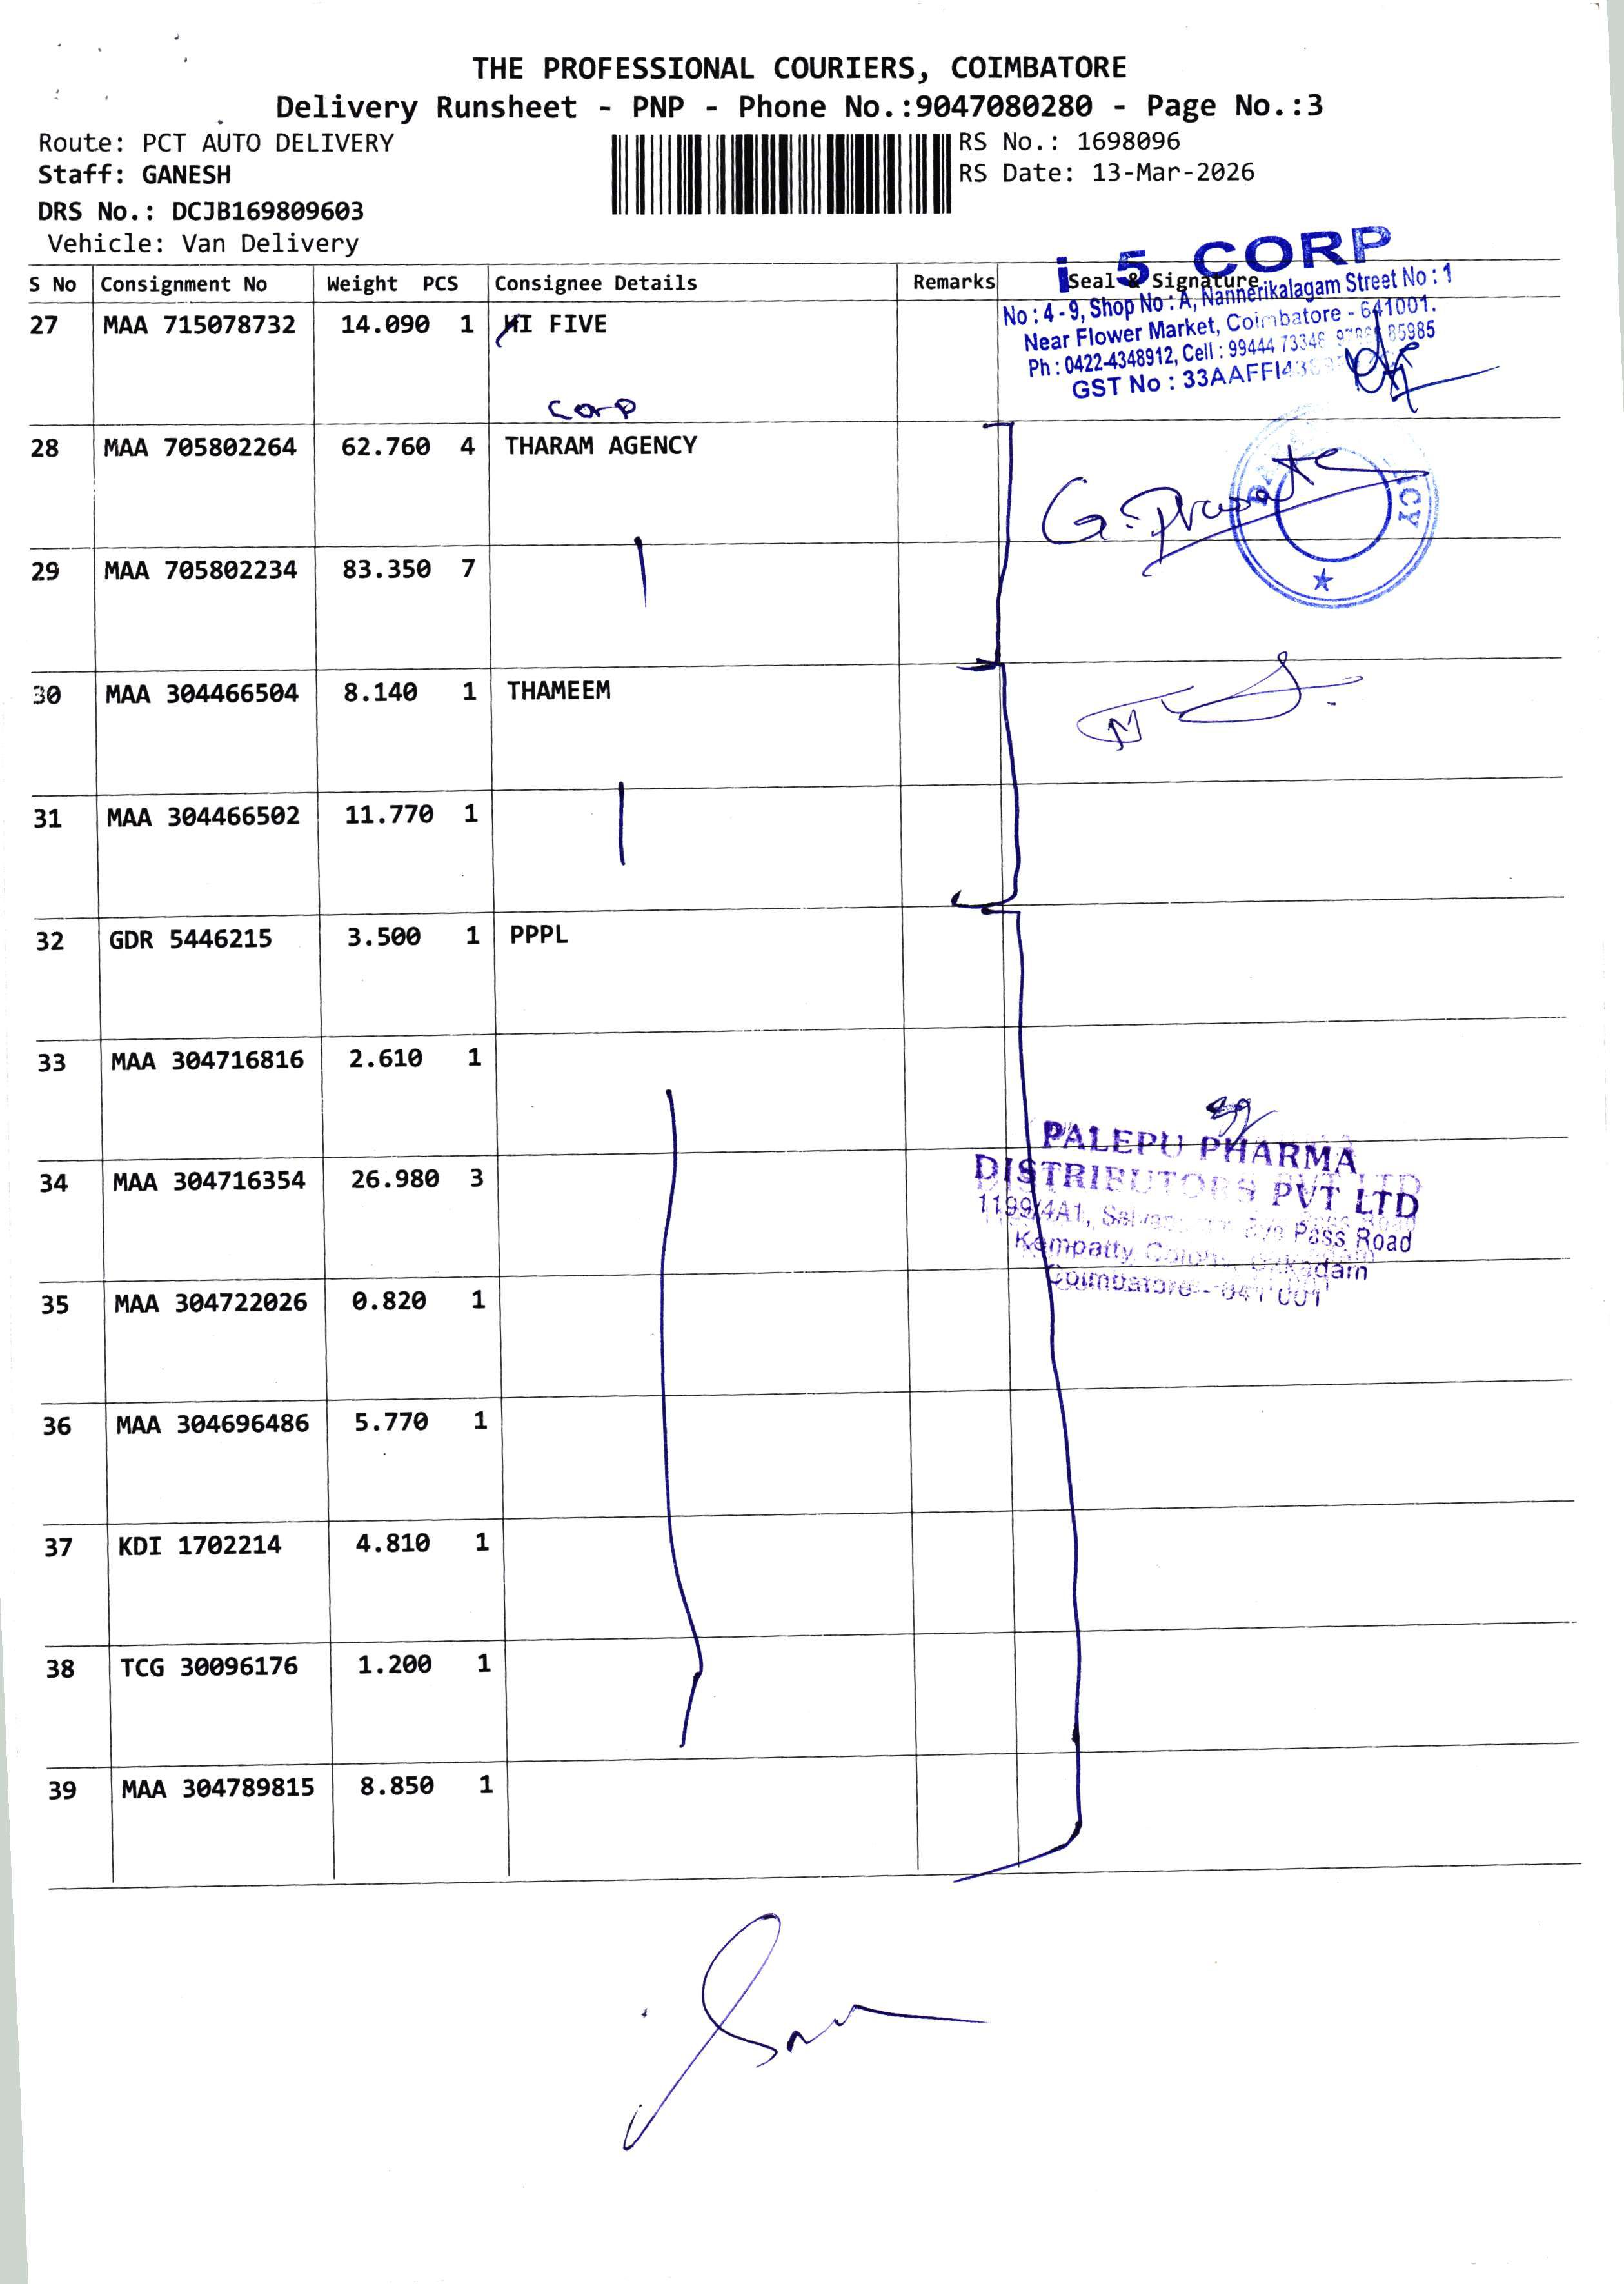 THE PROFESSIONAL COURIERS, COIMBATORE
Delivery Runsheet - PNP - Phone No.:9047080280 - Page No.:3
Route: PCT AUTO DELIVERY
RS No.: 1698096
Staff: GANESH
RS Date: 13-Mar-2026
DRS No.: DCJB169809603
Vehicle: Van Delivery
S No Consignment No Weight PCS Consignee Details Remarks Seal & Signature
i 5 CORP
No : 4 - 9, Shop No : A, Nannerikalagam Street No : 1
Near Flower Market, Coimbatore - 641001.
Ph : 0422-4348912, Cell : 99444 73346 85985
GST No :
27 MAA 715078732 14.090 1 HI FIVE
Corp
28 MAA 705802264 62.760 4 THARAM AGENCY
29 MAA 705802234 83.350 7
30 MAA 304466504 8.140 1 THAMEEM
31 MAA 304466502 11.770 1
32 GDR 5446215 3.500 1 PPPL
33 MAA 304716816 2.610 1
PALEPU PHARMA
DISTRIBUTORS PVT LTD
1199/4A1, Pass Road
Kempatty
Coimbatore - 641 001
34 MAA 304716354 26.980 3
35 MAA 304722026 0.820 1
36 MAA 304696486 5.770 1
37 KDI 1702214 4.810 1
38 TCG 30096176 1.200 1
39 MAA 304789815 8.850 1